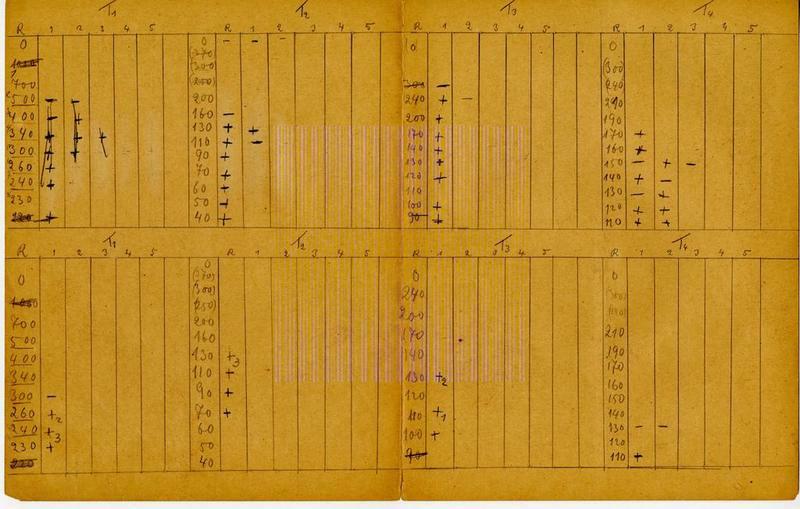 T1 T2 T3 T4
R 1 2 3 4 5 R 1 2 3 4 5 R 1 2 3 4 5 R 1 2 3 4 5
0 0 - - - 0 0
(270)
(300) (300)
700 (250) 300 - (240)
500 - - 200 240 + - 210
400 + + 160 - 200 + 190
340 + + + 130 + + 170 + 170 +
300 + + 110 + - 140 + 160 +
260 + 90 + 130 + 150 - + -
240 + 70 + 120 + 140 + -
230 60 + 110 130 - +
50 + 100 + 120 + +
220 + 40 + 90 + 110 + +
T1 T2 T3 T4
R 1 2 3 4 5 R 1 2 3 4 5 R 1 2 3 4 5 R 1 2 3 4 5
0 0 0 0
(270)
(300) 240 (300)
1000 (250) 200
700 200 170 210
500 160 140 190
400 130 +3 130 +2 170
340 110 + 120 160
300 - 90 + 110 +1 150
260 +2 70 + 100 + 140
240 +3 60 90 130 - -
230 + 50 120
220 40 110 +